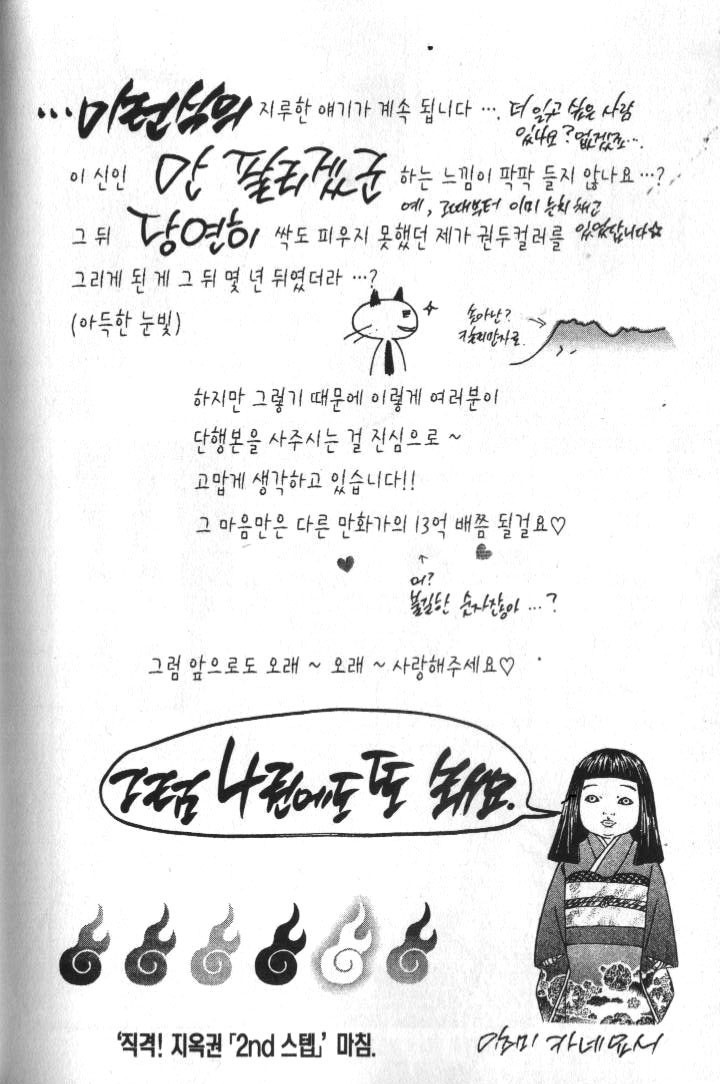 …이런식의 지루한 얘기가 계속 됩니다 …. 더 읽고 싶은 사람
있나요? 없겠죠….
이 신인 안 팔리겠군 하는 느낌이 팍팍 들지 않나요 …?
예, 그때부터 이미 눈치 채고
그 뒤 당연히 싹도 피우지 못했던 제가 권두컬러를 있었답니다☆
그리게 된 게 그 뒤 몇 년 뒤였더라 …?
(아득한 눈빛)
솟아난?
킬리만자로.
하지만 그렇기 때문에 이렇게 여러분이
단행본을 사주시는 걸 진심으로 ~
고맙게 생각하고 있습니다!!
그 마음만은 다른 만화가의 13억 배쯤 될걸요♡
어?
불길한 숫자잖아 …?
그럼 앞으로도 오래 ~ 오래 ~ 사랑해주세요♡
그럼 4권에도 또 봐요.
'직격! 지옥권 「2nd 스텝」' 마침.